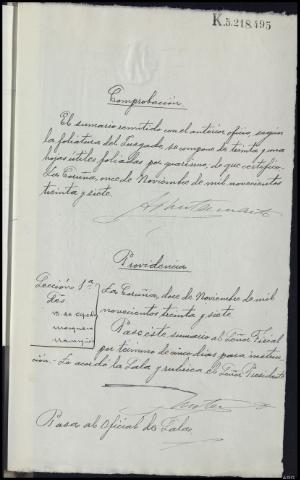 K.5.218,495
Comprobación
El sumario remitido con el anterior oficio, según
la foliatura del Juzgado, se compone de treinta y una
hojas útiles foliadas por guarismo, de que certifico.
La Coruña, once de Noviembre de mil novecientos
treinta y siete.
Providencia
Sección 1ª
La Coruña, doce de Noviembre de mil
novecientos treinta y siete.
Pase este sumario al Señor Fiscal
por término de cinco días para instruc-
ción.- Lo acordó la Sala y rubrica el Señor Presidente
Pasa al Oficial de Sala